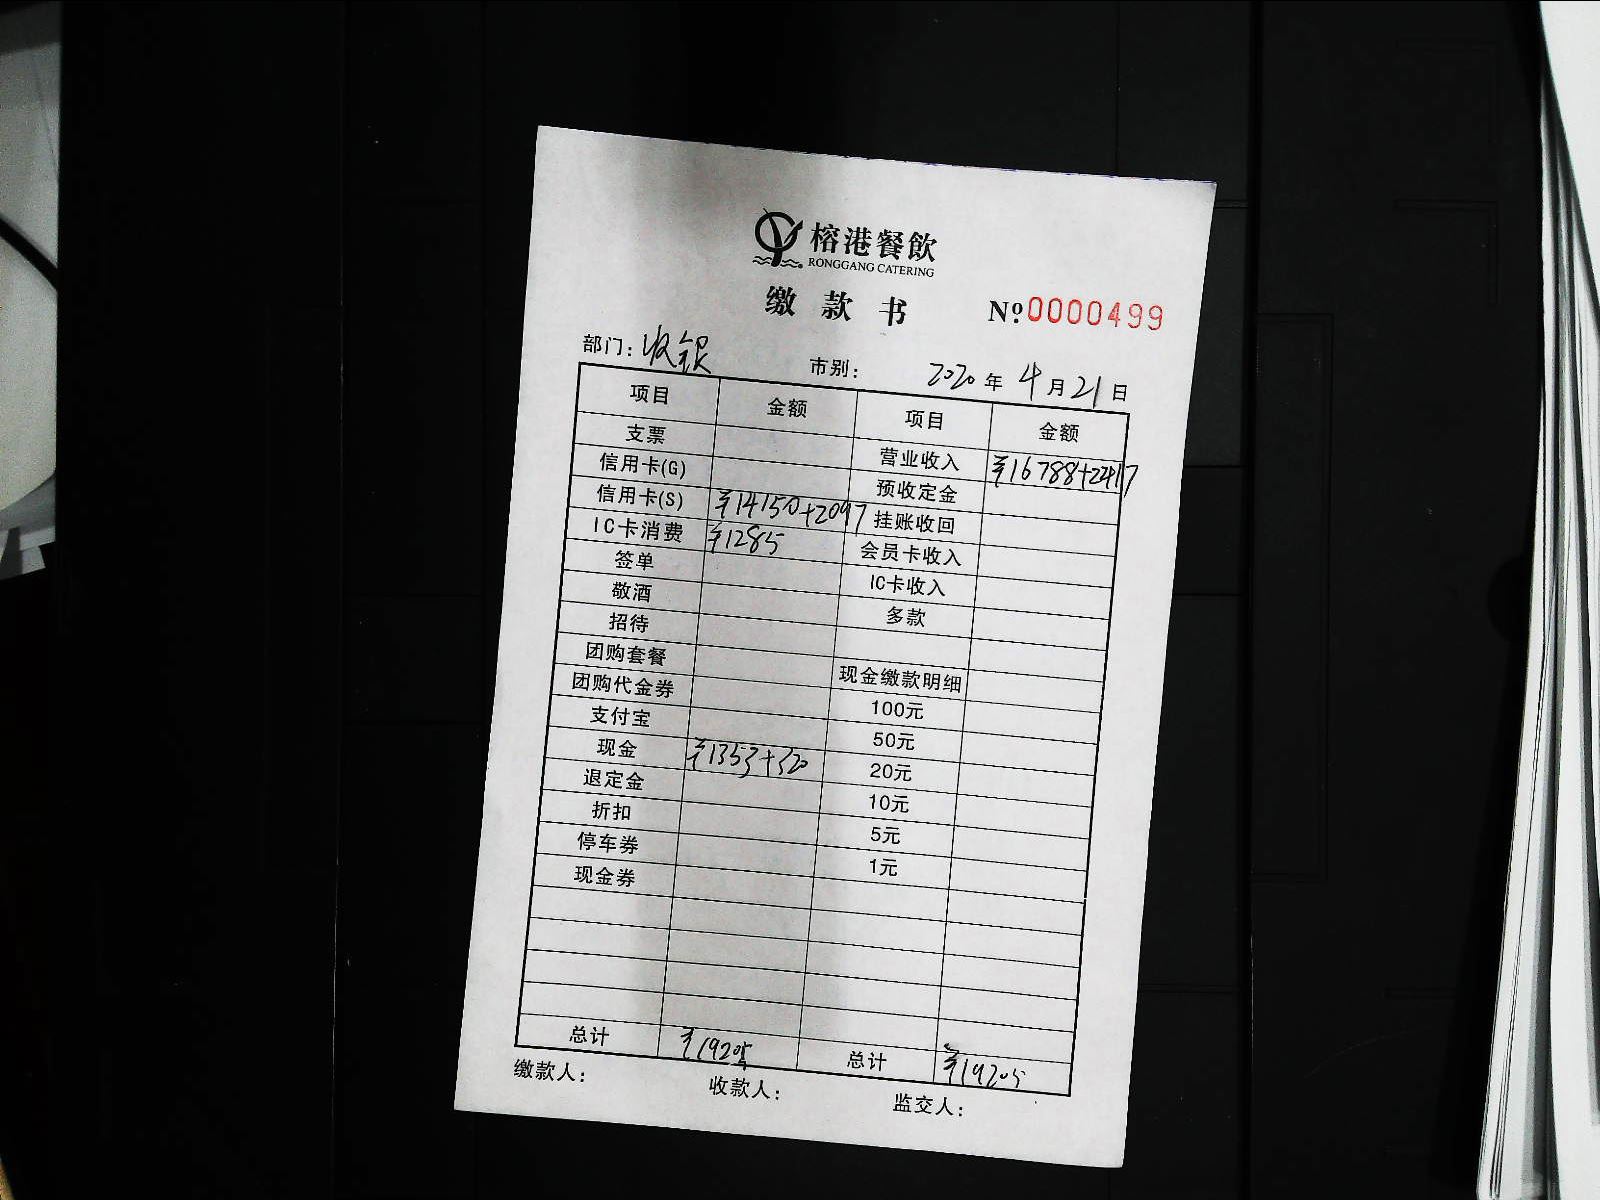 榕港餐飲
RONGGANG CATERING
缴款书 Nº0000499
部门: 收银 市别: 2020年4月21日
项目 金额 项目 金额
支票 营业收入 ¥16788+2417
信用卡(G) 预收定金
信用卡(S) ¥14150+2097 挂账收回
IC卡消费 ¥1285 会员卡收入
签单 IC卡收入
敬酒 多款
招待
团购套餐 现金缴款明细
团购代金券 100元
支付宝 50元
现金 ¥1353+320 20元
退定金 10元
折扣 5元
停车券 1元
现金券
总计 ¥19205 总计 ¥19205
缴款人: 收款人: 监交人: